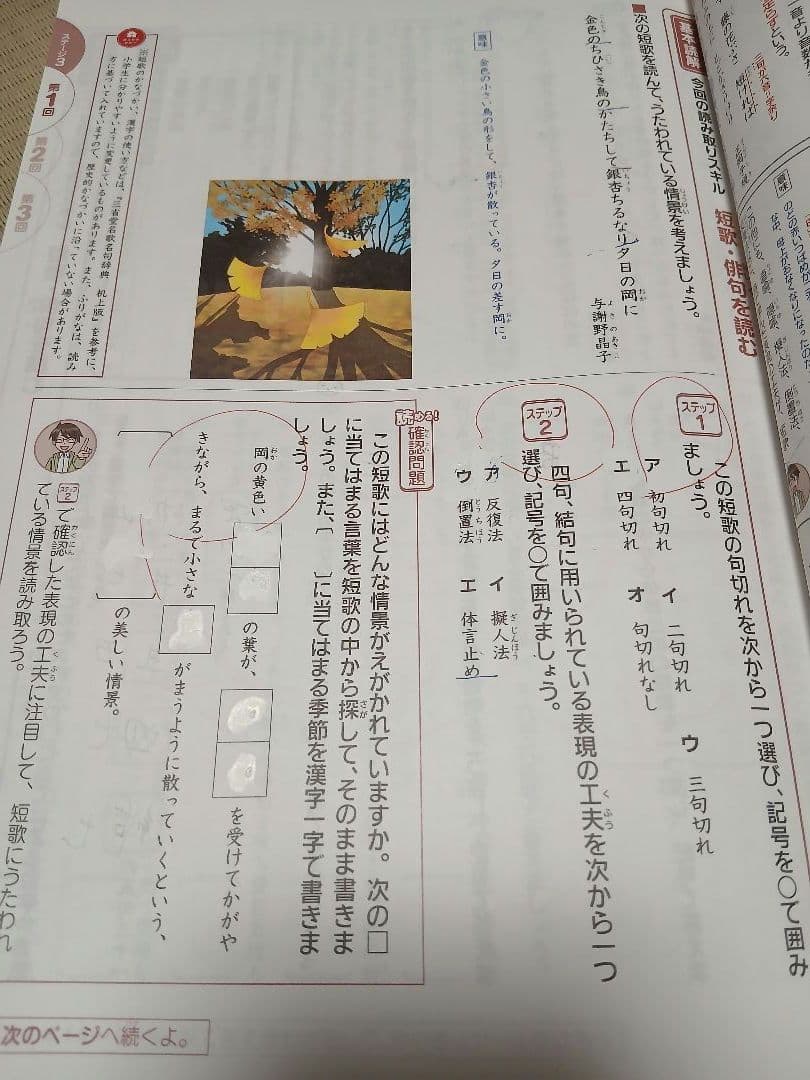 基本読解 今回の読み取りスキル 短歌・俳句を読む
■次の短歌を読んで、うたわれている情景を考えましょう。
金色のちひさき鳥のかたちして銀杏ちるなり夕日の岡に
与謝野晶子
意味
金色の小さい鳥の形をして、銀杏が散っている。夕日の差す岡に。
※短歌のかなづかい、漢字の使い方などは、『三省堂名歌名句辞典 机上版』を参考に、
小学生に分かりやすいように変更しているものがあります。また、ふりがなは、読み
方に基づいて入れていますので、歴史的かなづかいに沿っていない場合があります。
ステージ3
第1回
第2回
第3回
ステップ1
この短歌の句切れを次から一つ選び、記号を○で囲み
ましょう。
ア 初句切れ イ 二句切れ ウ 三句切れ
エ 四句切れ オ 句切れなし
ステップ2
四句、結句に用いられている表現の工夫を次から一つ
選び、記号を○で囲みましょう。
ア 反復法 イ 擬人法
ウ 倒置法 エ 体言止め
読める!確認問題
この短歌にはどんな情景がえがかれていますか。次の□
に当てはまる言葉を短歌の中から探して、そのまま書きま
しょう。また、〔 〕に当てはまる季節を漢字一字で書きま
しょう。
岡の黄色い□□の葉が、□□を受けてかがや
きながら、まるで小さな□がまうように散っていくという、
〔 〕の美しい情景。
ステップ2で確認した表現の工夫に注目して、短歌にうたわれ
ている情景を読み取ろう。
次のページへ続くよ。